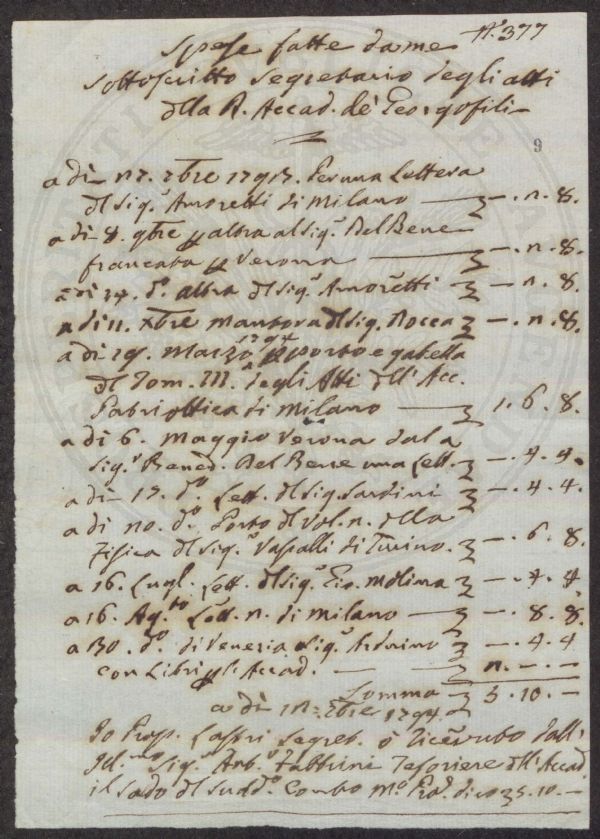 N.° 377
Spese fatte da me
sottoscritto Segretario degli atti
della R. Accad. de' Georgofili
9
a dì 17. 7bre 1793. Per una Lettera
del Sig.r Amoretti di Milano — 8.
a dì 8. 9bre p altra al Sig.r Del Bene
francata p Verona — 8.
a dì 14. d.o altra del Sig.r Amoretti — 8.
a dì 11. Xbre Mantova del Sig. Rocca — 8.
a dì 19. Marzo 1794 porto e gabella
del Tom. III. degli Atti dell' Acc.
Patriottica di Milano — 1. 6. 8.
a dì 6. Maggio Verona dal
Sig.r Bened. Del Bene una Lett. — 4. 4.
a dì 15. d.o Lett. del Sig. Sardini — 4. 4.
a dì 20. d.o Porto del Vol. 2. della
Fisica del Sig.r Vassalli di Turino. — 6. 8.
a 16. Lugl. Lett. del Sig.r Gio. Molina — 4. 4
a 16. Ag.to Lett. 2. di Milano — 8. 8.
a 30. d.o di Venezia Sig.r Arduino — 4. 4
con Libri p l'Accad. —
Somma 10. —
a dì 7bre 1794.
Io Prop. Lastri Segret. ò ricevuto dall'
Ill.mo Sig.r Ant.o Fabbrini Tesoriere dell' Accad.
il Saldo del Sudd.o Conto 10. —